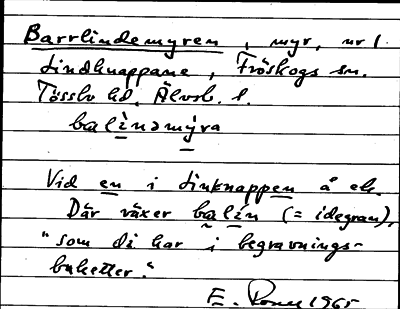 Barrlindemyren, myr, nr 1.
Lindknappane, Fröskogs sn.
Tössbo hd. Älvsb. l.
balìnəmýra
Vid en i Linknappen å ek.
Där växer balín (= idegran),
"som di har i begravnings-
buketter."
E. 1965